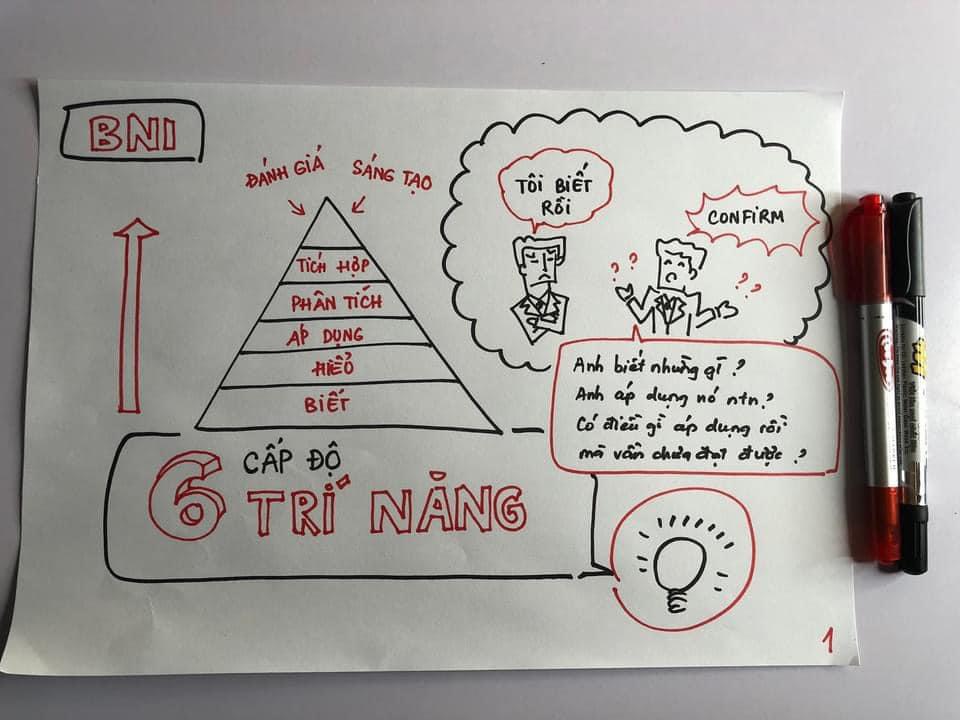 BNI
ĐÁNH GIÁ
SÁNG TẠO
TÍCH HỢP
PHÂN TÍCH
ÁP DỤNG
HIỂU
BIẾT
6 CẤP ĐỘ
TRÍ NĂNG
TÔI BIẾT
RỒI
CONFIRM
? ?
? ?
Anh biết những gì?
Anh áp dụng nó ntn?
Có điều gì áp dụng rồi
mà vẫn chưa đạt được?
1